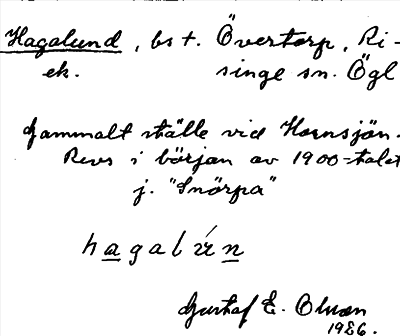 Hagalund, bs t. Övertorp, Ri-
ek. singe sn. Ögl
Gammalt ställe vid Hornsjön.
Revs i början av 1900-talet
j. "Snörpa"
hagalún
Gustaf E. Olsson
1926.